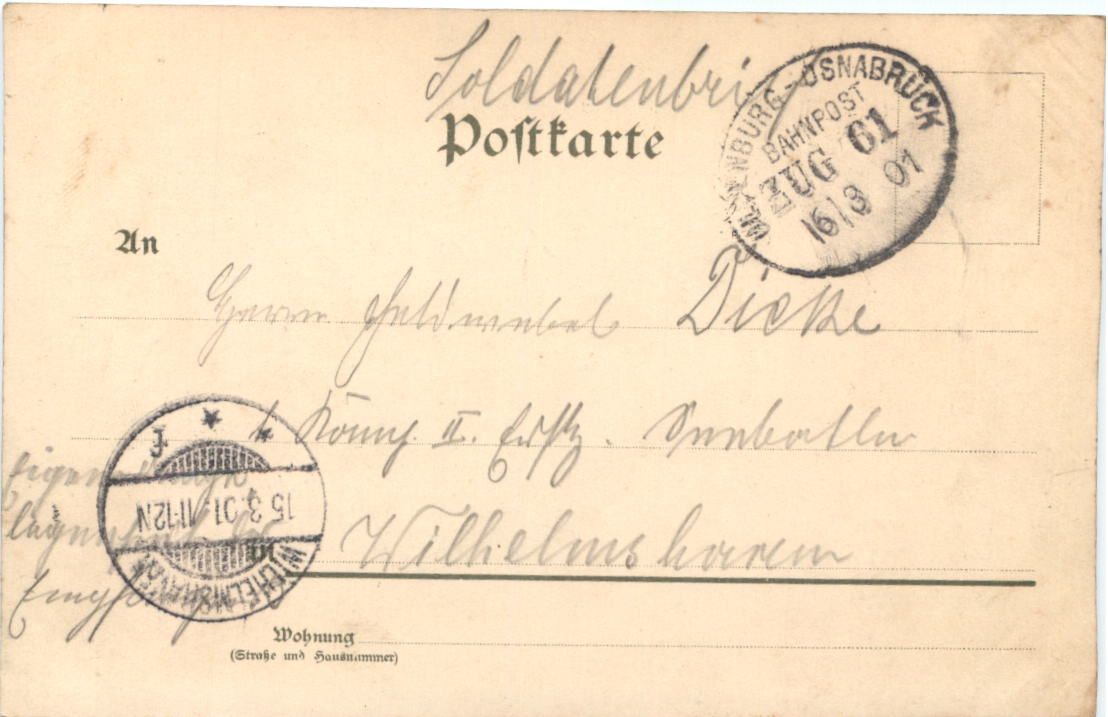 Soldatenbrief
Postkarte
OLDENBURG-OSNABRÜCK
BAHNPOST
ZUG 61
16/3 01
An
Herrn Feldwebel Dicke
Komp. II. Ers. Seebatln
Wilhelmshaven
WILHELMSHAVEN
15.3.01.11-12N
Empfängers
Wohnung
(Straße und Hausnummer)